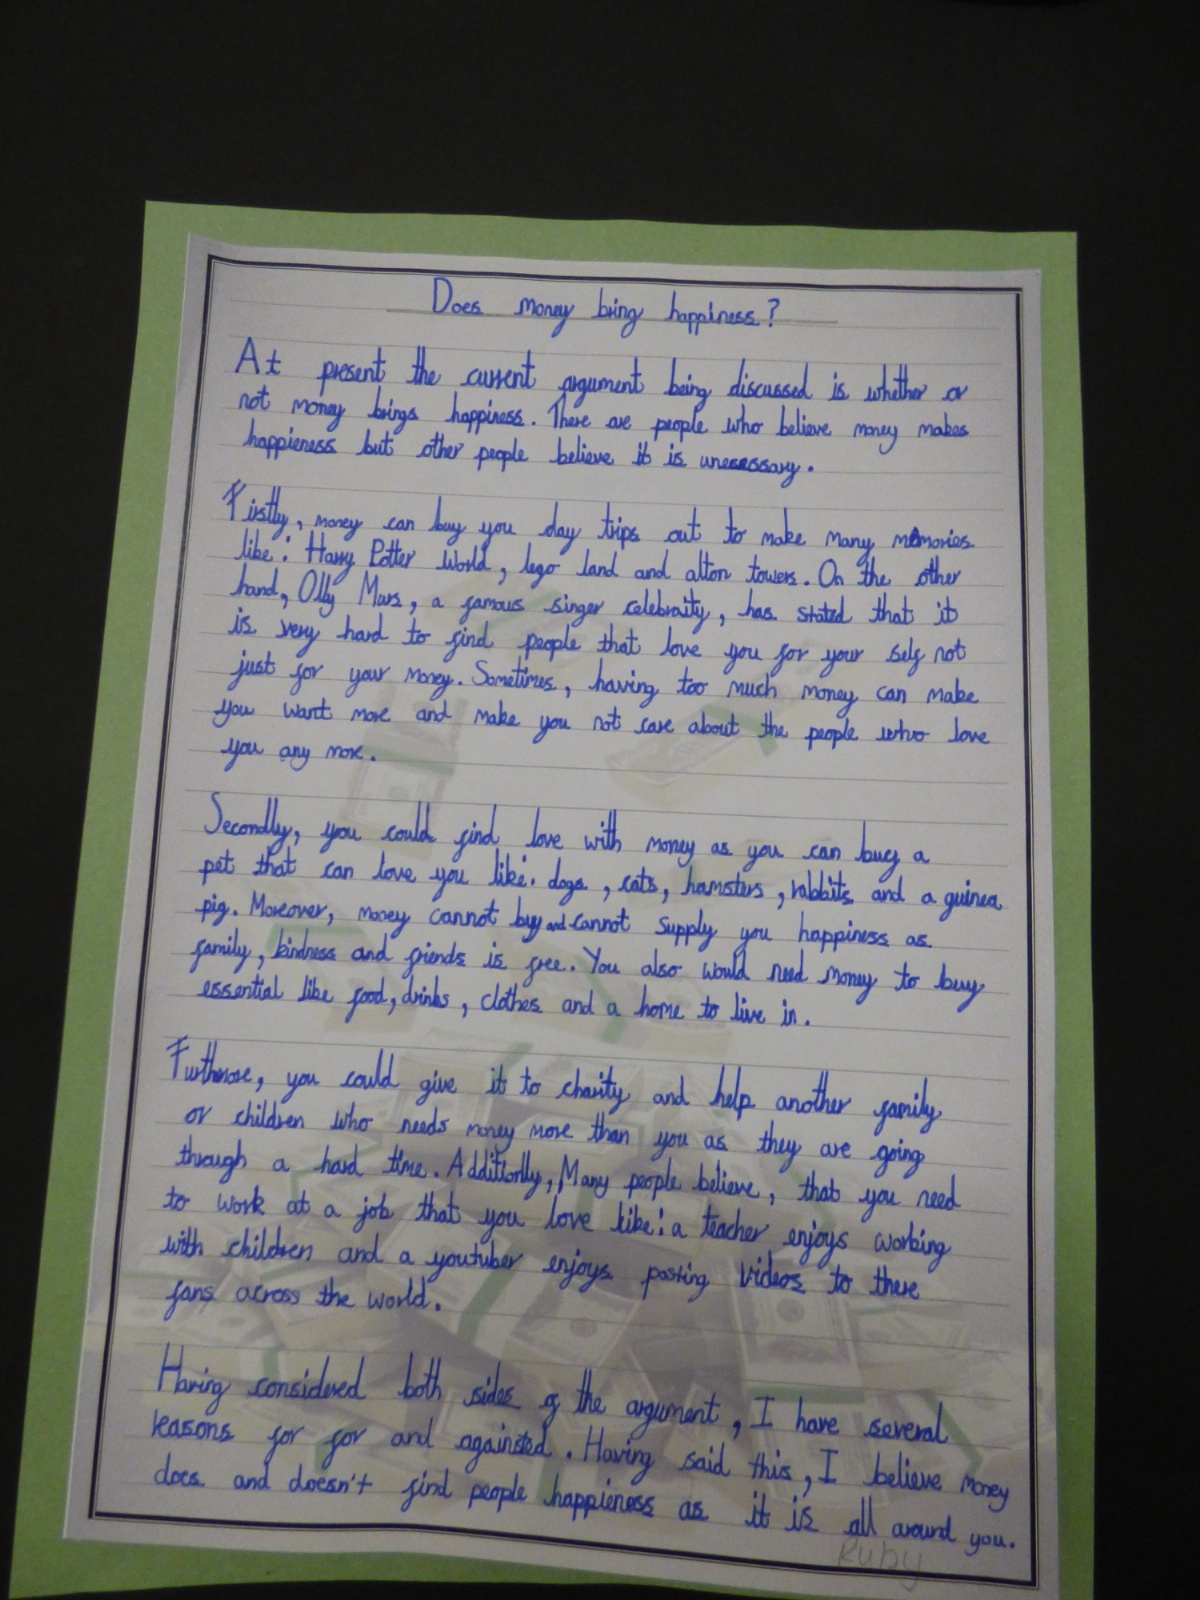 Does money bring happiness?
At present the current argument being discussed is whether or
not money brings happiness. There are people who believe money makes
happieness but other people believe it is unecessary.
Firstly, money can buy you day trips out to make many memories
like: Harry Potter World, lego land and alton towers. On the other
hand, Olly Murs, a famous singer celebraity, has stated that it
is very hard to find people that love you for your self not
just for your money. Sometimes, having too much money can make
you want more and make you not care about the people who love
you any more.
Secondly, you could find love with money as you can buy a
pet that can love you like: dogs, cats, hamsters, rabbits and a guinea
pig. Moreover, money cannot buy and cannot supply you happiness as
family, kindness and friends is free. You also would need money to buy
essential like food, drinks, clothes and a home to live in.
Furthmore, you could give it to charity and help another family
or children who needs money more than you as they are going
through a hard time. Additionlly, Many people believe, that you need
to work at a job that you love like: a teacher enjoys working
with children and a youtuber enjoys posting videos to there
fans across the world.
Having considered both sides of the argument, I have several
reasons for for and againsted. Having said this, I believe money
does and doesn't find people happieness as it is all around you.
Ruby